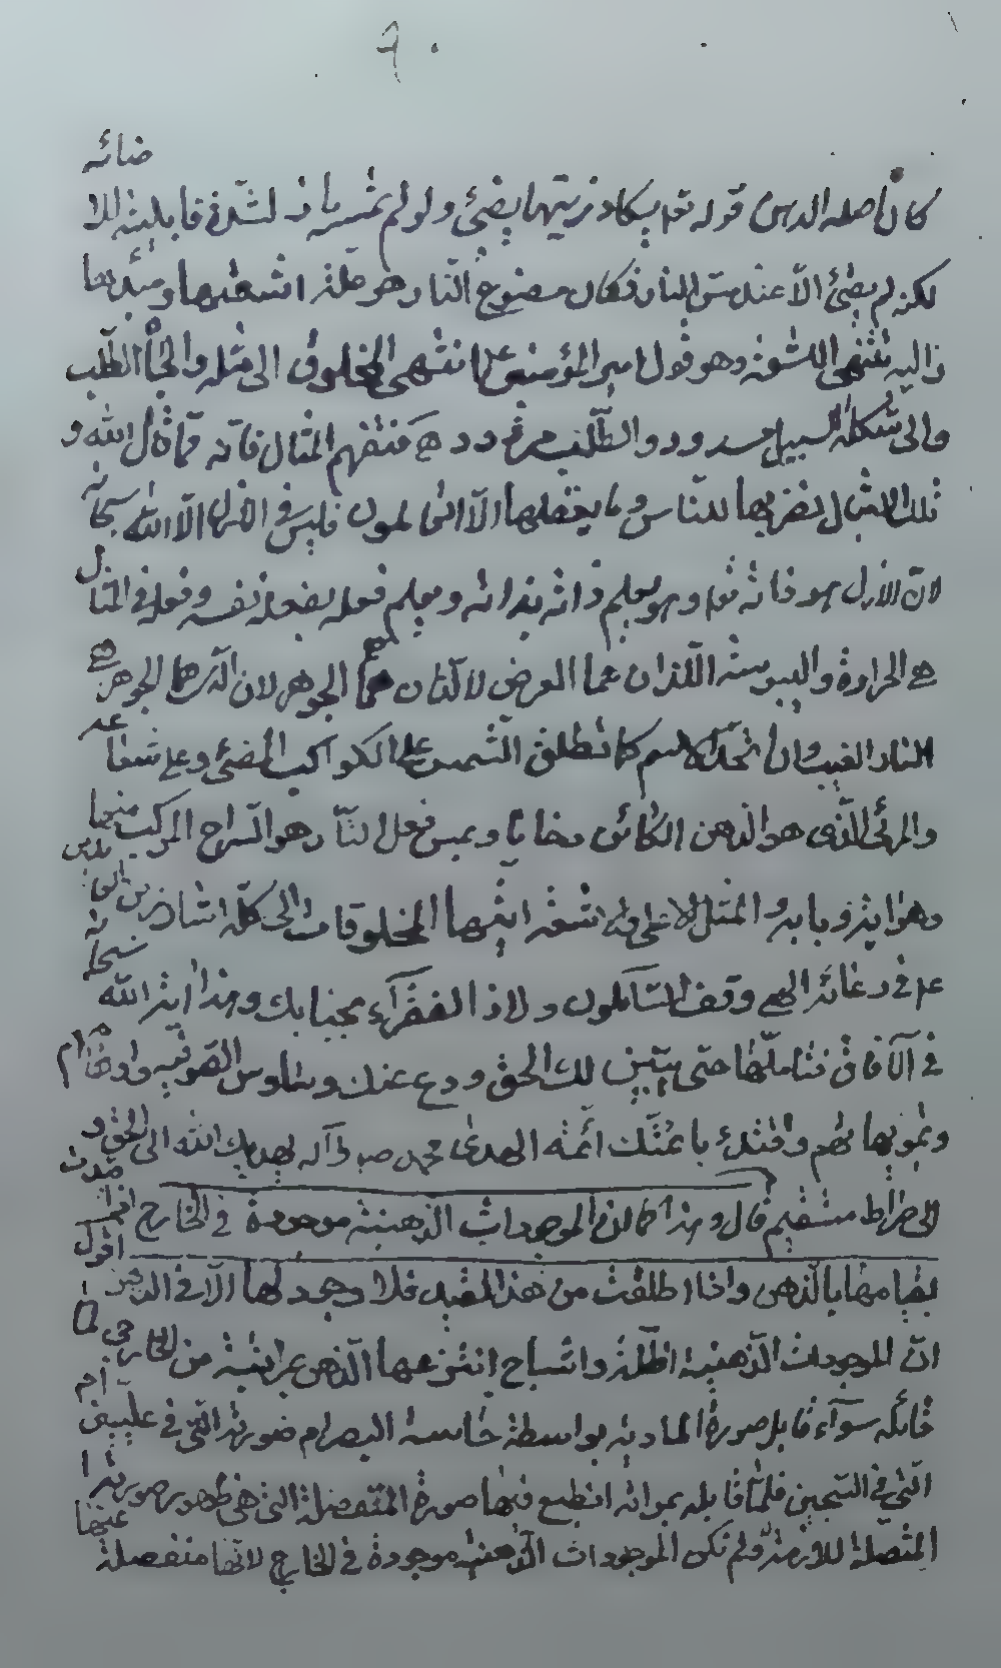 ٩٠
كان اصله الدهن قوله تعم يكاد زيتها يضئ ولو لم تمسسه نار لشدة قابليته للاضائه
لكنه لم يضئ الا عند مس النار فكان مصنوع النار هو علة اشعتها ومبدءها
واليه تنتهى الاشعة وهو قول امير المؤمنين ع انتهى المخلوق الى مثله والجأه الطلب
والى شكله السبيل مسدود والطلب مردود فتفهم المثال فانه مما قال الله و
تلك الامثال نضربها للناس وما يعقلها الا العالمون فليس فى الازل الا الله سبحانه
لان الازل هو ذاته تعم وهو يعلم ذاته بذاته ويعلم فعله بفعله نفسه وفعله فى المثال
هى الحرارة واليبوسة اللذان هما العرض لا اللتان هما الجوهر لان اللتين هما الجوهر هى
النار الغيب وان اتحد الاسم كما تطلق الشمس على الكواكب المضئ وعلى شعاعه
والمرئى الذى هو الدهن الكائن دخانا وبمس فعل النار هو السراج المركب منهما
وهو اية وبابه والمثل الاعلى اشعة ايتها المخلوقات الى كله اشار زين العابدين
ع فى دعائه الهى وقف السائلون ولاذ الفقراء بجنابك وهذا اية الله سبحانه
فى الآفاق فتاملها حتى يتبين لك الحق ودع عنك وساوس الصوفيه واوهامهم
وتمويهاتهم واقتدء بائمتك ائمة الهدى محمد ص وآله يهديك الله الى الحق و
الى صراط مستقيم قال وهذا كما ان الموجودات الذهنية موجودة فى الخارج اذا قيدت
بقيامها بالذهن واذا اطلقت من هذا القيد فلا وجود لها الا فى الذهن اقول
ان الموجودات الذهنية اظلة واشباح انتزعها الذهن عرايته من الخارجى لما
قابله سوآء قابل صورة المادية بواسطة حاسة البصر ام صورته التى فى عليين ام
التى فى السجين فلما قابله بمرآته انطبع فيها صورة المنفصلة التى هى ظهور صورتها
المتصلة اللازمة ولم تكن الموجودات الذهنية موجودة فى الخارج لانها منفصلة عنها